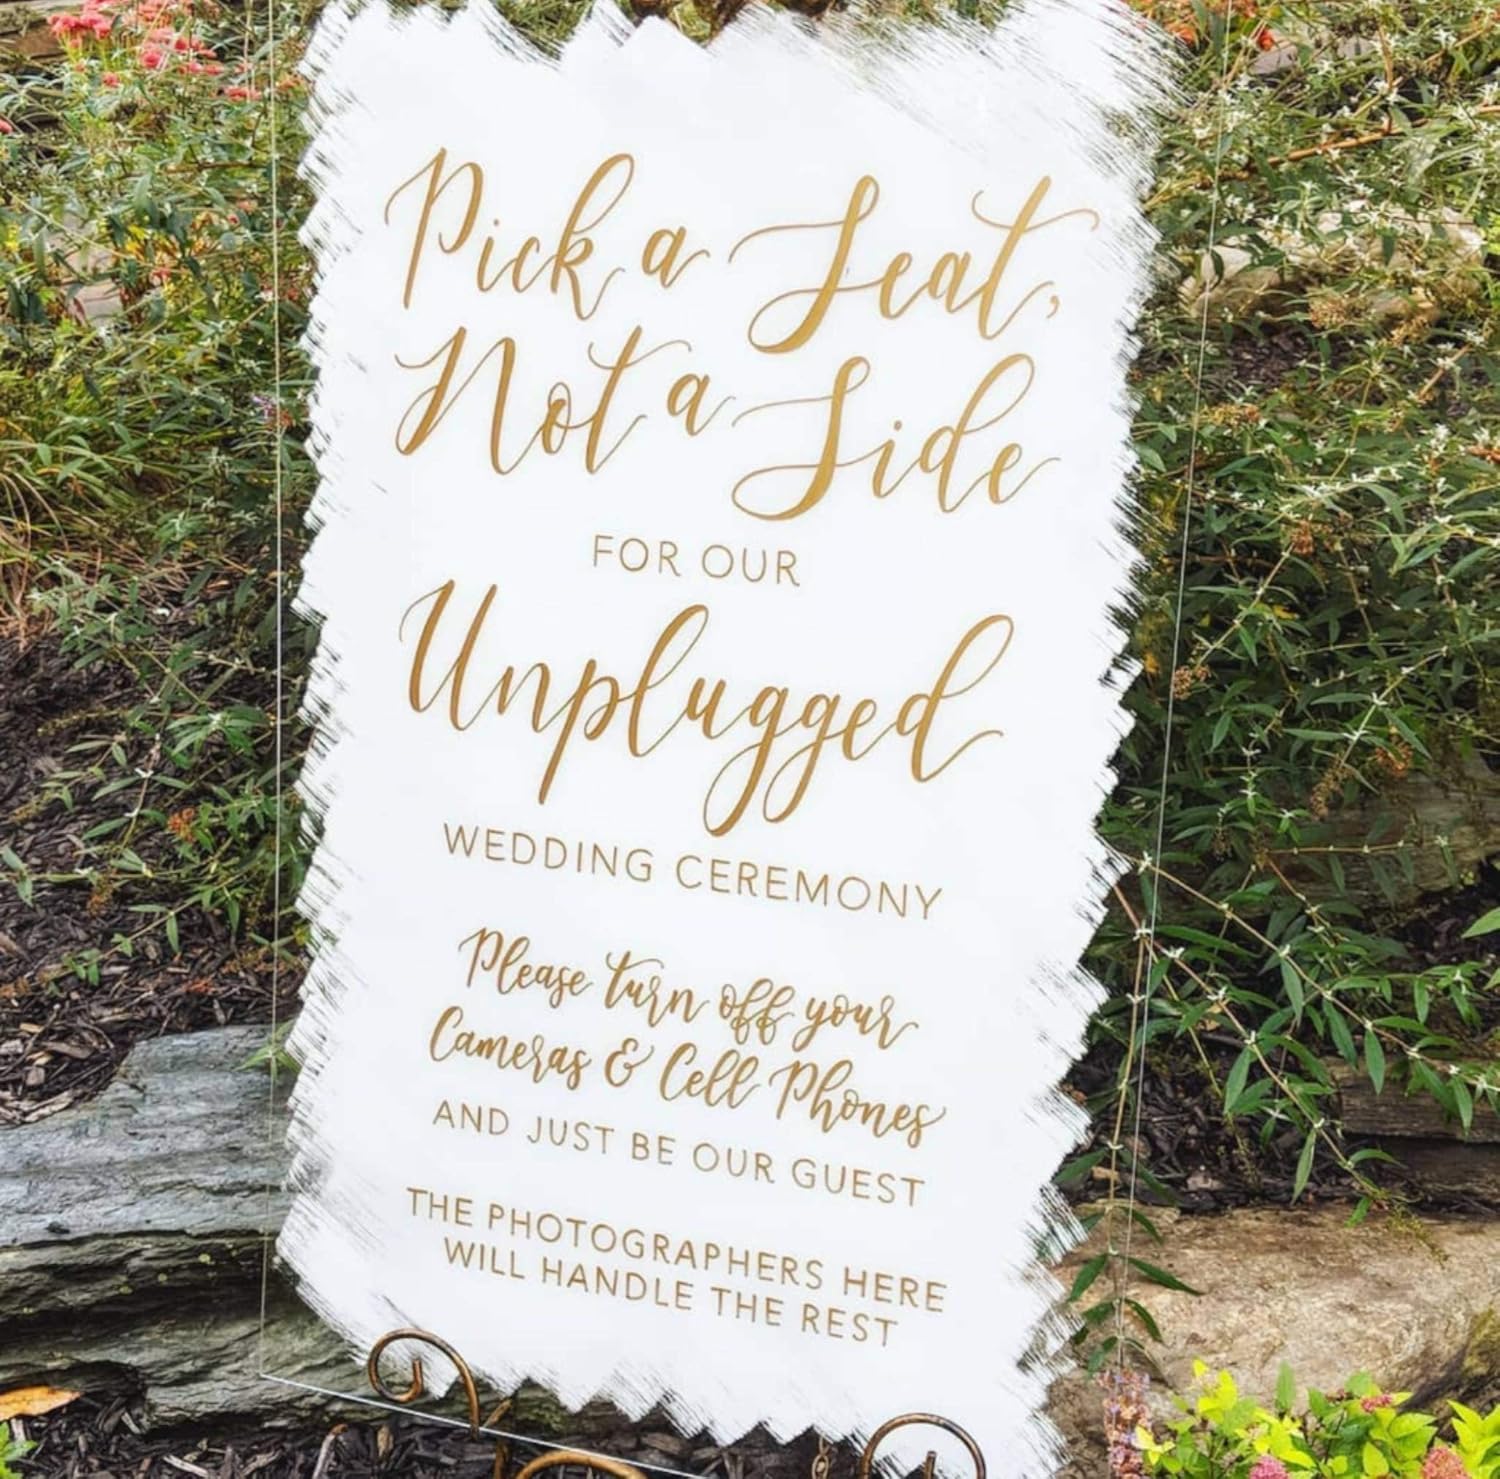 Pick a Seat,
Not a Side
FOR OUR
Unplugged
WEDDING CEREMONY
Please turn off your
Cameras & Cell Phones
AND JUST BE OUR GUEST
THE PHOTOGRAPHERS HERE
WILL HANDLE THE REST